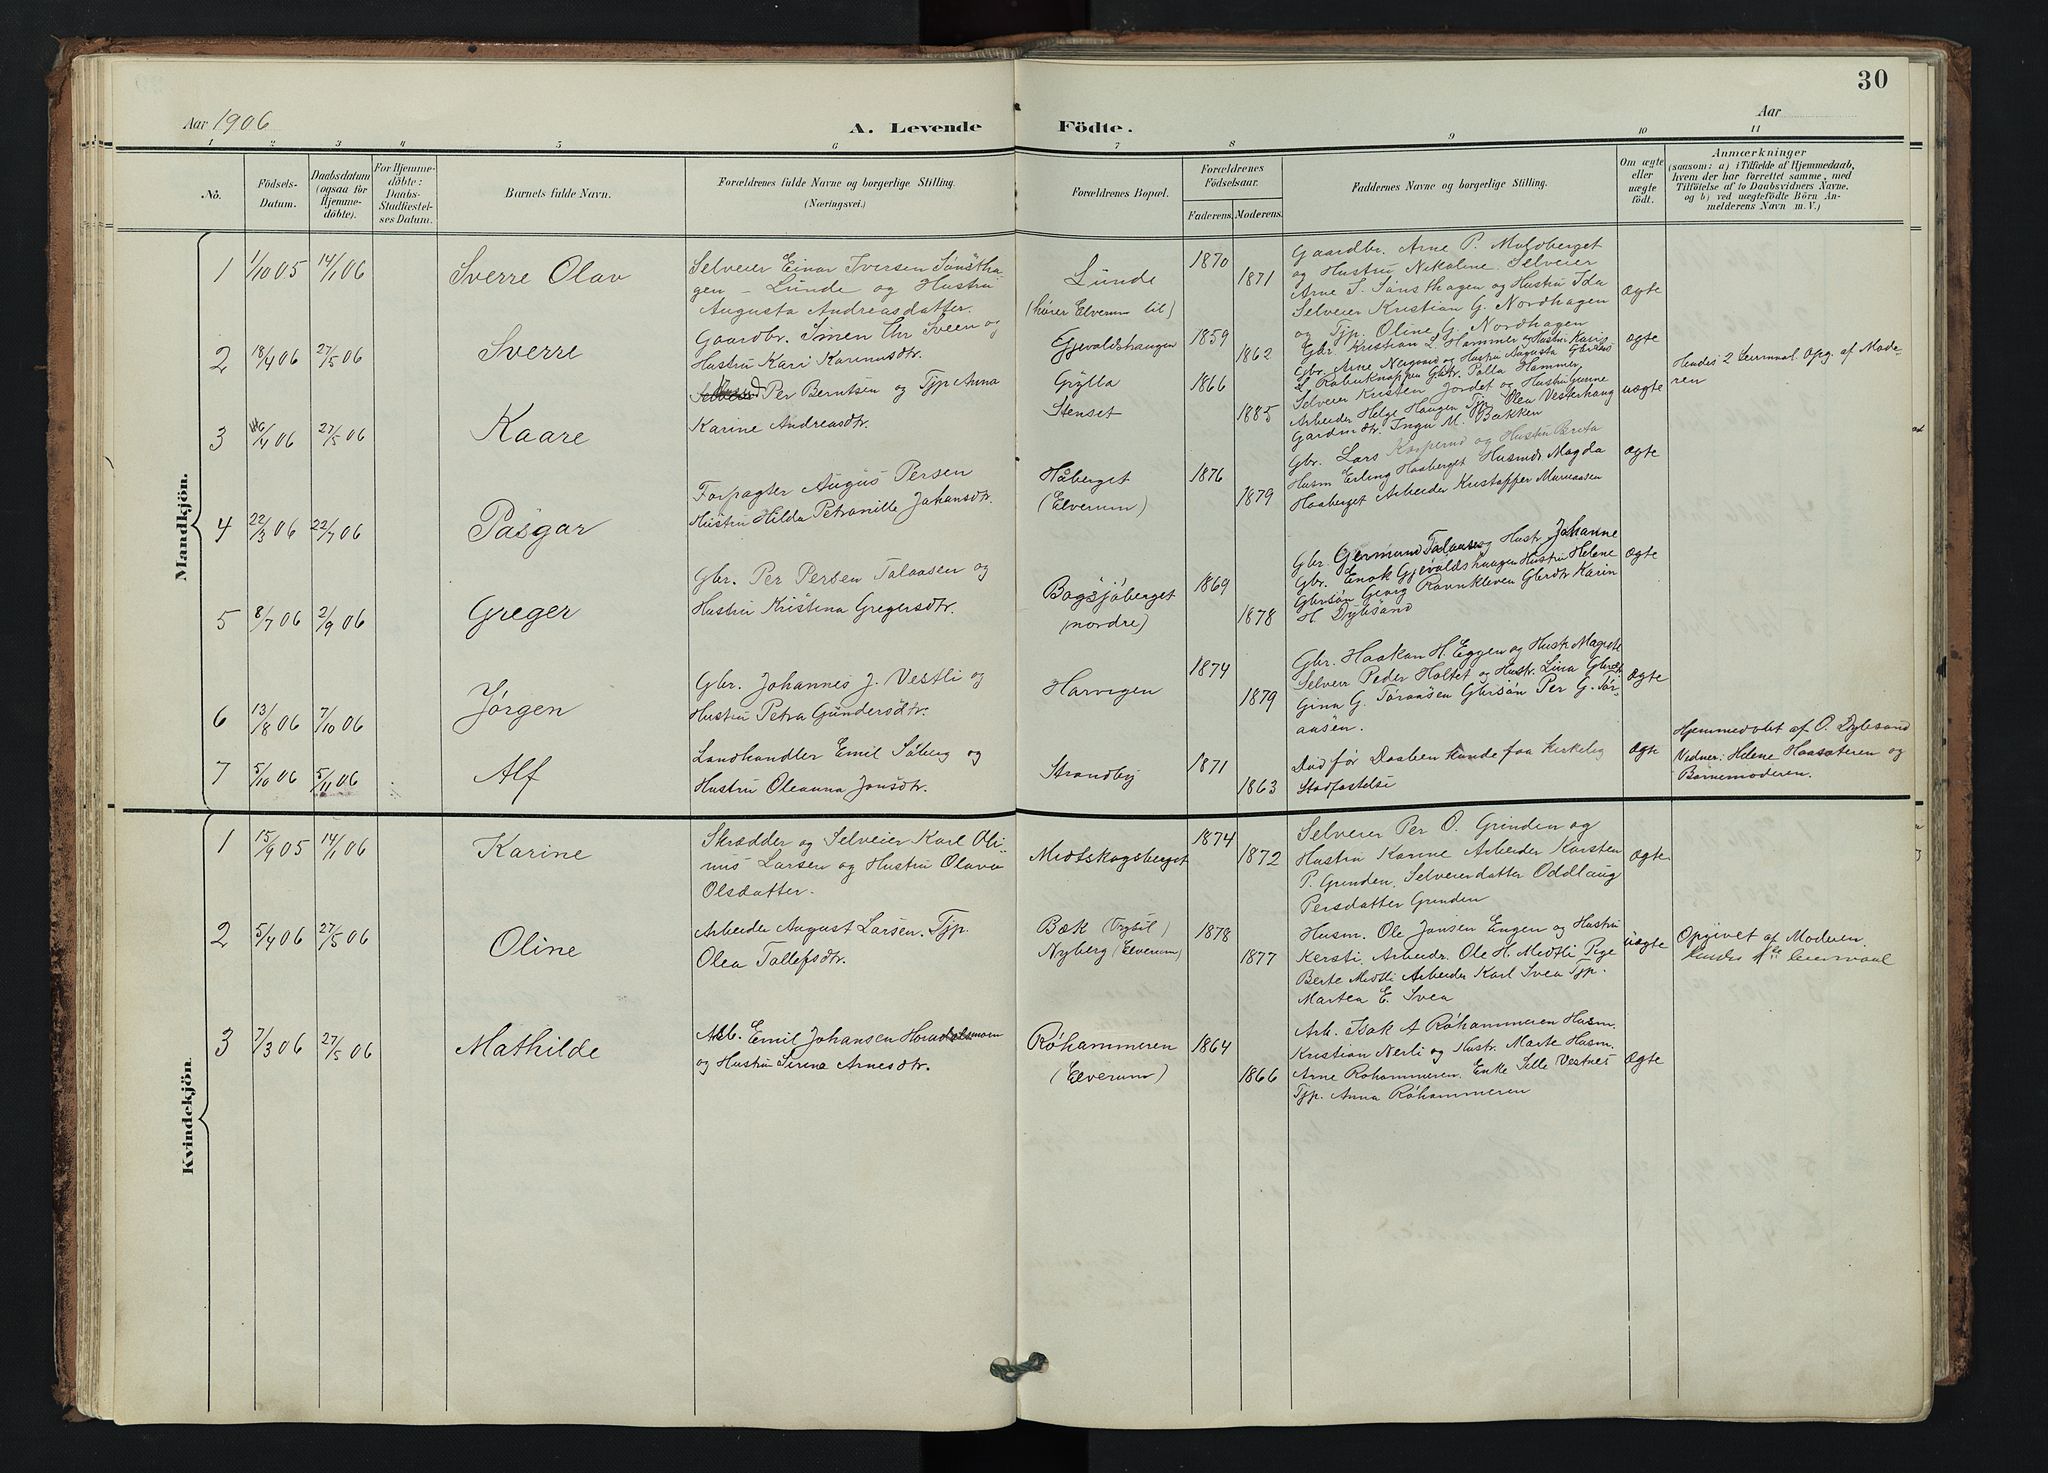 30
Aar 1906
A. Levende Födte.
Aar
1 2 3 4 5 6 7 8 9 10 11
No.
Födsels-Datum.
Daabsdatum (ogsaa for Hjemme-döbte).
For Hjemme-döbte: Daabs-Stadfæstel-ses Datum.
Barnets fulde Navn.
Forældrenes fulde Navne og borgerlige Stilling. (Næringsvei.)
Forældrenes Bopæl.
Forældrenes Födselsaar.
Faderens. Moderens.
Faddernes Navne og borgerlige Stilling.
Om ægte eller uægte födt.
Anmærkninger
(saasom: a) i Tilfælde af Hjemmedaab,
hvem der har forrettet samme, med
Tilföielse af to Daabsvidners Navne,
og b) ved uægtefödte Börn An-
melderens Navn m. V.)
Mandkjön.
1 1/10 05 14/1 06 Sverre Olav
Selveier Einar Iversen Sønstha
gen - Lunde og Hustru
Augusta Andreasdatter.
Lunde
(hører Elverum til)
1870 1871
Gaardbr. Arne P. Moldberget
og Hustru Nikoline. Selveier
Arne S. Sønsthagen og Hustru Ida
Selveier Kristian G. Nordhagen
og Tjp. Oline G. Nordhagen
ægte
2 18/4 06 27/5 06 Sverre
Gaardbr. Simen Chr Sveen og
Hustru Kari Karinusdtr.
Gjevaldshaugen
1859 1862
Gbr. Kristian L. Hammer og Hustru Karis
Gbr. Arne Neugard og Hustru Augusta
Hammer
ægte
3 16/4 06 27/5 06 Kaare
Per Berntsen og Tjp Anna
Karine Andreasdtr.
Grylla
Stenset
1866 1885
Selveier Kristen Jordet og Hustru Gunne
Arbeider Helge Haugen Tjp Olea Vesterhaug
Gardmdtr. Inga M. Bakken
uægte
Hendes 2 Leiermaal. Opg. af Mode-
ren
4 22/3 06 22/7 06 Pasgar
Forpagter August Persen
Hustru Hilda Petronille Johansdtr.
Håberget
(Elverum)
1876 1879
Gbr. Lars Kopperud og Hustru Berta
Husm Erling Haaberget Husmdr Magda
Haaberget Arbeider Kristoffer Mariussen
ægte
5 8/7 06 2/9 06 Greger
Gbr. Per Persen Talaasen og
Hustru Kristina Gregersdtr.
Bogsjøberget
(nordre)
1869 1878
Gbr. Germund Talaasen og Hustr. Johanne
Gbr. Enok Gjevaldshaugen Hustru Helene
Gbrsøn Georg Ravnkleven Gbrdtr Karin
H. Dybsand
ægte
6 13/8 06 7/10 06 Jørgen
Gbr. Johannes J. Vestli og
Hustru Petra Gundersdtr.
Harvigen
1874 1879
Gbr. Haakon H. Eggen og Hustr. Magnte
Selveier Peder Holtet og Hustr. Lina Gbrdtr
Gina G. Tøraasen Gbrsøn Per G. Tør-
aasen.
ægte
7 5/10 06 5/11 06 Alf
Landhandler Emil Søberg og
Hustru Oleanna Jonsdtr.
Strandby
1871 1863
Død før Daaben kunde faa kirkelig
Stadfæstelse
ægte
Hjemmedøbt af O. Dybsand
Vidner: Helene Haasæteren og
Børnemoderen.
Kvindekjön.
1 15/9 05 14/1 06 Karine
Skrædder og Selveier Karl Oli
nus Larsen og Hustru Olava
Olsdatter.
Midtskogsberget
1874 1872
Selveier Per O. Grinden og
Hustru Karine Arbeider Karsten
P. Grinden. Selveierdatter Oddlaug
Persdatter Grinden
ægte
2 5/4 06 27/5 06 Oline
Arbeider August Larsen. Tjp.
Olea Tollefsdtr.
Bæk (Trysil)
Nyberg (Elverum)
1878 1877
Husm. Ole Jonsen Engen og Hustru
Kersti. Arbeidr. Ole H. Midtli Pige
Berte Midtli Arbeider Karl Svea Tjp.
Martea E. Svea
uægte
Opgivet af Moderen.
Hendes 1ste Leiermaal
3 7/3 06 27/5 06 Mathilde
Arb. Emil Johansen
og Hustru Sirena Arnesdtr.
Røhammeren
(Elverum)
1864 1866
Arb. Isak A Røhammeren Husm.
Kristian Nerli og Hustr. Marte Husm.
Arne Røhammeren. Enke Sille Vestnes
Tjp. Anna Røhammeren
ægte